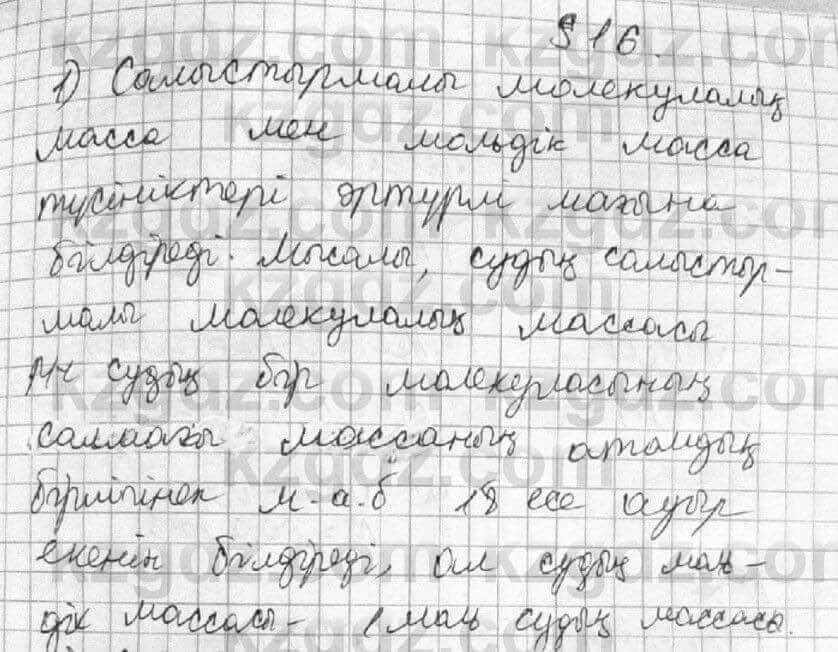 §16.
1) Салыстырмалы молекулалық
масса мен мольдік масса
түсініктері әртүрлі мағына
білдіреді. Мысалы, судың салыстыр-
малы молекулалық массасы
Mr судың бір молекуласының
салмағы массаның атомдық
бірлігінен м.а.б 18 есе ауыр
екенін білдіреді, ал судың моль-
дік массасы - 1 моль судың массасы.